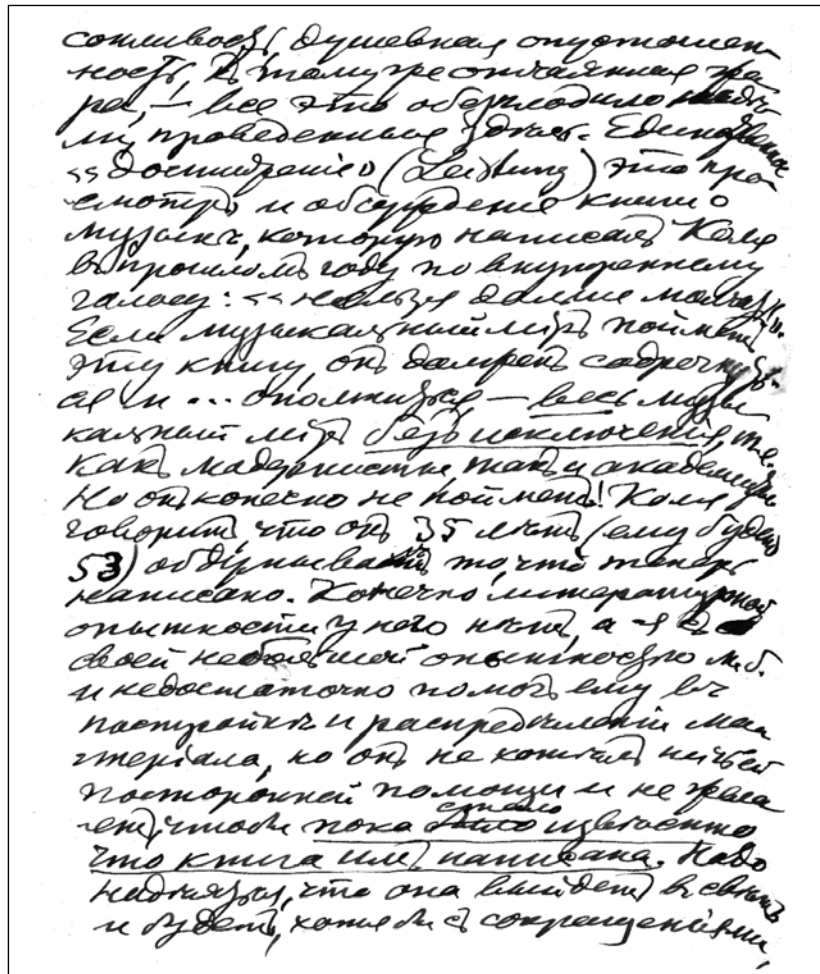 сонливость, душевная опустошен-
ность, къ тому же отчаянная жа-
ра, — все это обезплодило недѣ-
ли, проведенныя здѣсь. Единственное
«достиженіе» (Leistung) это про-
смотръ и обсужденіе книги о
музыкѣ, которую написалъ Коля
въ прошломъ году по внутреннему
голосу: «нельзя далѣе молчать».
Если музыкальный міръ пойметъ
эту книгу, онъ долженъ содрогнуть-
ся и ... опомниться, — весь музы-
кальный міръ безъ исключенія, т.е.
какъ модернисты, такъ и академисты.
Но онъ конечно не пойметъ! Коля
говоритъ, что онъ 35 лѣтъ (ему будетъ
53) обдумывалъ то, что теперь
написано. Конечно литературной
опытности у него нѣтъ, а я со
своей небольшой опытностью м.б.
и недостаточно помогъ ему въ
постройкѣ и распредѣленіи ма-
теріала, но онъ не хотѣлъ ничьей
посторонней помощи и не жела-
етъ, чтобы пока стало извѣстно
что книга имъ написана. Надо
надѣяться, что она выйдетъ въ свѣтъ
и будетъ, хотя бы съ сокращеніями,